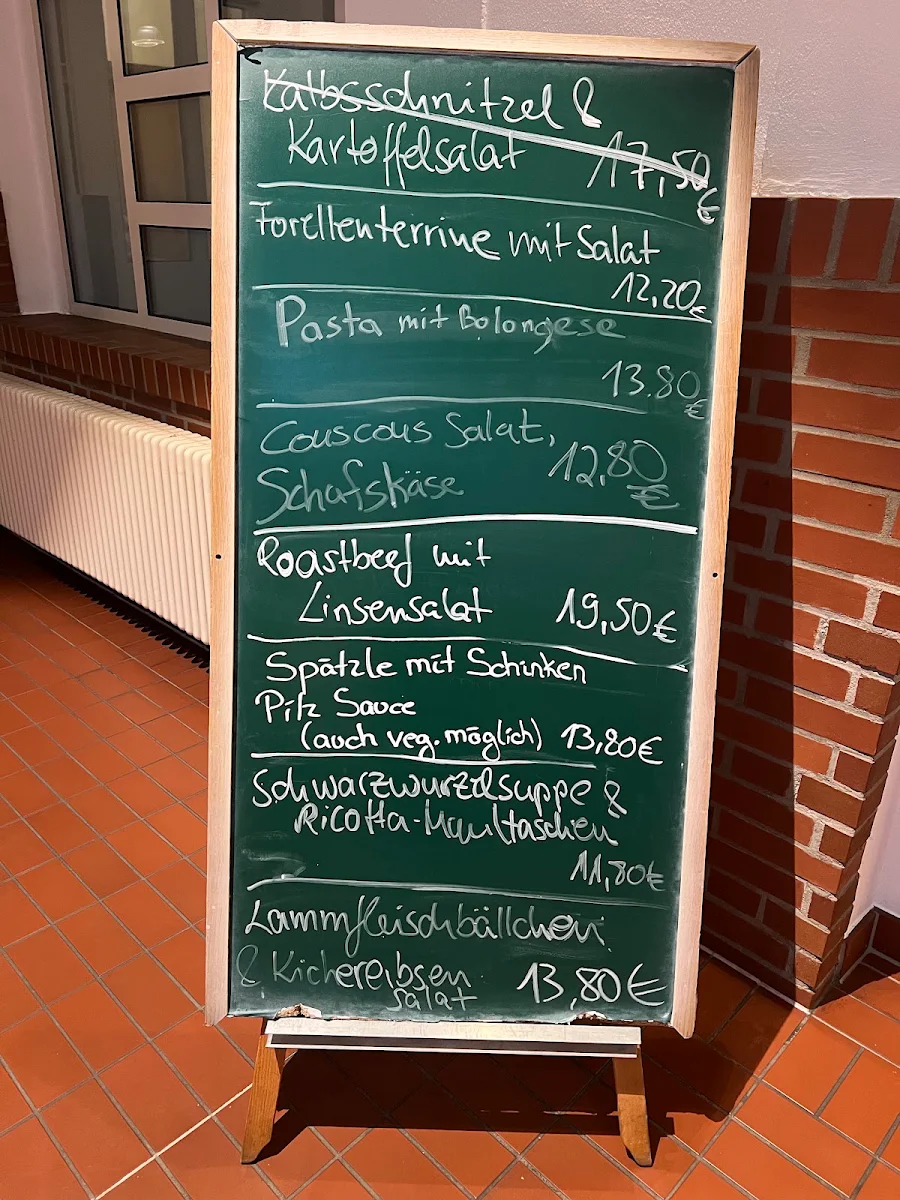 Kalbsschnitzel &
Kartoffelsalat 17,50
€
Forellenterrine mit Salat
12,20€
Pasta mit Bolongese
13.80
€
Couscous Salat,
Schafskäse 12,80
€
Roastbeef mit
Linsensalat 19,50€
Spätzle mit Schinken
Pilz Sauce
(auch veg. möglich) 13,80€
Schwarzwurzelsuppe &
Ricotta-Maultaschen
11,80€
Lammfleischbällchen
& Kichereibsen 13,80€
salat